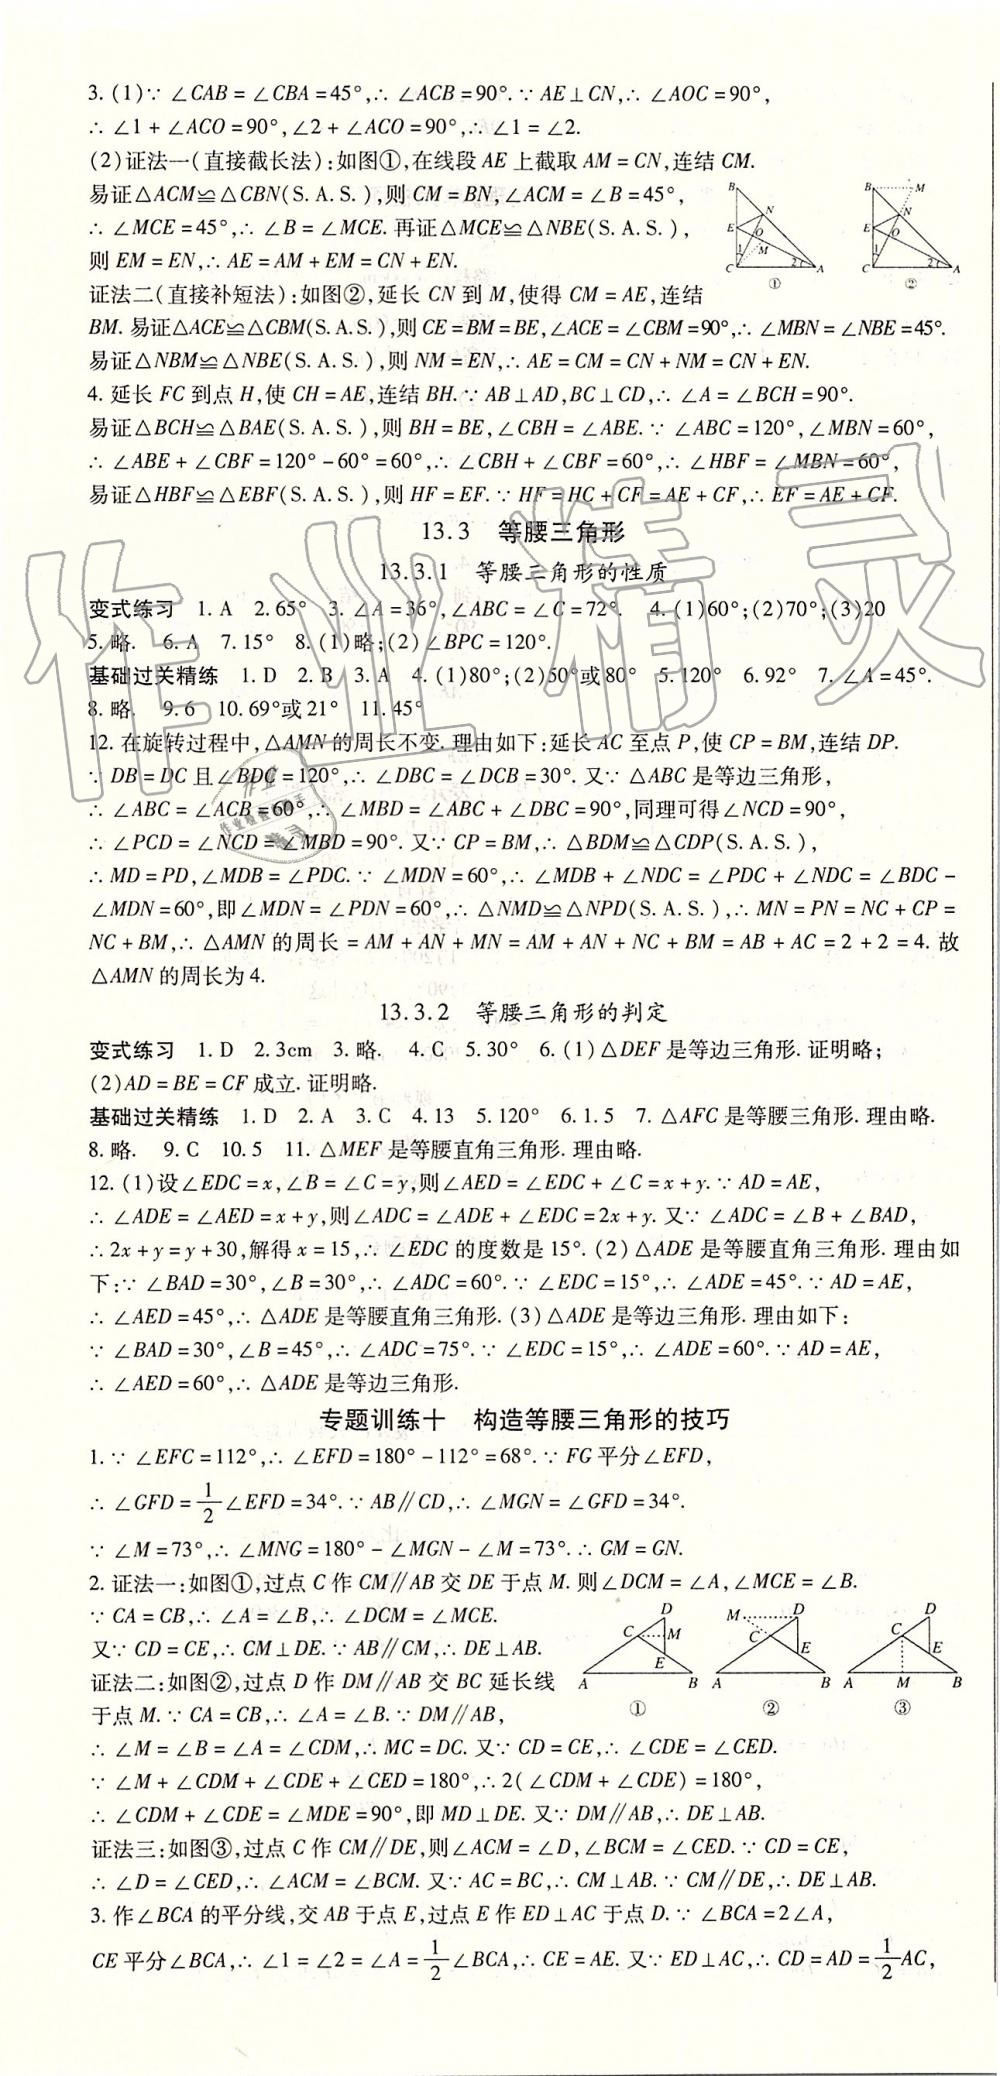 3. (1)∵ ∠CAB = ∠CBA = 45°,∴ ∠ACB = 90°. ∵ AE⊥CN,∴ ∠AOC = 90°,
∴ ∠1 + ∠ACO = 90°,∠2 + ∠ACO = 90°,∴ ∠1 = ∠2.
(2)证法一(直接截长法):如图①,在线段 AE 上截取 AM = CN,连结 CM.
易证△ACM≌△CBN(S. A. S. ),则 CM = BN,∠ACM = ∠B = 45°,
∴ ∠MCE = 45°,∴ ∠B = ∠MCE. 再证△MCE≌△NBE(S. A. S. ),
则 EM = EN,∴ AE = AM + EM = CN + EN.
B N E O M 1 2 C A ①
B M N E O 1 2 C A ②
证法二(直接补短法):如图②,延长 CN 到 M,使得 CM = AE,连结
BM. 易证△ACE≌△CBM(S. A. S. ),则 CE = BM = BE,∠ACE = ∠CBM = 90°,∴ ∠MBN = ∠NBE = 45°.
易证△NBM≌△NBE(S. A. S. ),则 NM = EN,∴ AE = CM = CN + NM = CN + EN.
4. 延长 FC 到点 H,使 CH = AE,连结 BH. ∵ AB⊥AD,BC⊥CD,∴ ∠A = ∠BCH = 90°.
易证△BCH≌△BAE(S. A. S. ),则 BH = BE,∠CBH = ∠ABE. ∵ ∠ABC = 120°,∠MBN = 60°,
∴ ∠ABE + ∠CBF = 120° - 60° = 60°,∴ ∠CBH + ∠CBF = 60°,∴ ∠HBF = ∠MBN = 60°,
易证△HBF≌△EBF(S. A. S. ),则 HF = EF. ∵ HF = HC + CF = AE + CF,∴ EF = AE + CF.
13.3 等腰三角形
13.3.1 等腰三角形的性质
变式练习 1. A 2. 65° 3. ∠A = 36°,∠ABC = ∠C = 72°. 4. (1)60°;(2)70°;(3)20
5. 略. 6. A 7. 15° 8. (1)略;(2)∠BPC = 120°.
基础过关精练 1. D 2. B 3. A 4. (1)80°;(2)50°或80° 5. 120° 6. 92° 7. ∠A = 45°.
8. 略. 9. 6 10. 69°或21° 11. 45°
12. 在旋转过程中,△AMN 的周长不变. 理由如下:延长 AC 至点 P,使 CP = BM,连结 DP.
∵ DB = DC 且∠BDC = 120°,∴ ∠DBC = ∠DCB = 30°. 又∵ △ABC 是等边三角形,
∴ ∠ABC = ∠ACB = 60°,∴ ∠MBD = ∠ABC + ∠DBC = 90°,同理可得∠NCD = 90°,
∴ ∠PCD = ∠NCD = ∠MBD = 90°. 又∵ CP = BM,∴ △BDM≌△CDP(S. A. S. ),
∴ MD = PD,∠MDB = ∠PDC. ∵ ∠MDN = 60°,∴ ∠MDB + ∠NDC = ∠PDC + ∠NDC = ∠BDC -
∠MDN = 60°,即∠MDN = ∠PDN = 60°,∴ △NMD≌△NPD(S. A. S. ),∴ MN = PN = NC + CP =
NC + BM,∴ △AMN 的周长 = AM + AN + MN = AM + AN + NC + BM = AB + AC = 2 + 2 = 4. 故
△AMN 的周长为 4.
13.3.2 等腰三角形的判定
变式练习 1. D 2. 3cm 3. 略. 4. C 5. 30° 6. (1)△DEF 是等边三角形. 证明略;
(2)AD = BE = CF 成立. 证明略.
基础过关精练 1. D 2. A 3. C 4. 13 5. 120° 6. 1.5 7. △AFC 是等腰三角形. 理由略.
8. 略. 9. C 10. 5 11. △MEF 是等腰直角三角形. 理由略.
12. (1)设∠EDC = x,∠B = ∠C = y,则∠AED = ∠EDC + ∠C = x + y. ∵ AD = AE,
∴ ∠ADE = ∠AED = x + y,则∠ADC = ∠ADE + ∠EDC = 2x + y. 又∵ ∠ADC = ∠B + ∠BAD,
∴ 2x + y = y + 30,解得 x = 15,∴ ∠EDC 的度数是 15°. (2)△ADE 是等腰直角三角形. 理由如
下:∵ ∠BAD = 30°,∠B = 30°,∴ ∠ADC = 60°. ∵ ∠EDC = 15°,∴ ∠ADE = 45°. ∵ AD = AE,
∴ ∠AED = 45°,∴ △ADE 是等腰直角三角形. (3)△ADE 是等边三角形. 理由如下:
∵ ∠BAD = 30°,∠B = 45°,∴ ∠ADC = 75°. ∵ ∠EDC = 15°,∴ ∠ADE = 60°. ∵ AD = AE,
∴ ∠AED = 60°,∴ △ADE 是等边三角形.
专题训练十 构造等腰三角形的技巧
1. ∵ ∠EFC = 112°,∴ ∠EFD = 180° - 112° = 68°. ∵ FG 平分∠EFD,
∴ ∠GFD = 1/2∠EFD = 34°. ∵ AB∥CD,∴ ∠MGN = ∠GFD = 34°.
∵ ∠M = 73°,∴ ∠MNG = 180° - ∠MGN - ∠M = 73°. ∴ GM = GN.
2. 证法一:如图①,过点 C 作 CM∥AB 交 DE 于点 M. 则∠DCM = ∠A,∠MCE = ∠B.
∵ CA = CB,∴ ∠A = ∠B,∴ ∠DCM = ∠MCE.
又∵ CD = CE,∴ CM⊥DE. ∵ AB∥CM,∴ DE⊥AB.
证法二:如图②,过点 D 作 DM∥AB 交 BC 延长线
于点 M. ∵ CA = CB,∴ ∠A = ∠B. ∵ DM∥AB,
D C M E A B ①
M D C E A B ②
D C E A M B ③
∴ ∠M = ∠B = ∠A = ∠CDM,∴ MC = DC. 又∵ CD = CE,∴ ∠CDE = ∠CED.
∵ ∠M + ∠CDM + ∠CDE + ∠CED = 180°,∴ 2( ∠CDM + ∠CDE) = 180°,
∴ ∠CDM + ∠CDE = ∠MDE = 90°,即 MD⊥DE. 又∵ DM∥AB,∴ DE⊥AB.
证法三:如图③,过点 C 作 CM∥DE,则∠ACM = ∠D,∠BCM = ∠CED. ∵ CD = CE,
∴ ∠D = ∠CED,∴ ∠ACM = ∠BCM. 又∵ AC = BC,∴ CM⊥AB. ∵ CM∥DE,∴ DE⊥AB.
3. 作∠BCA 的平分线,交 AB 于点 E,过点 E 作 ED⊥AC 于点 D. ∵ ∠BCA = 2∠A,
CE 平分∠BCA,∴ ∠1 = ∠2 = ∠A = 1/2∠BCA,∴ CE = AE. 又∵ ED⊥AC,∴ CD = AD = 1/2AC,
作业精灵